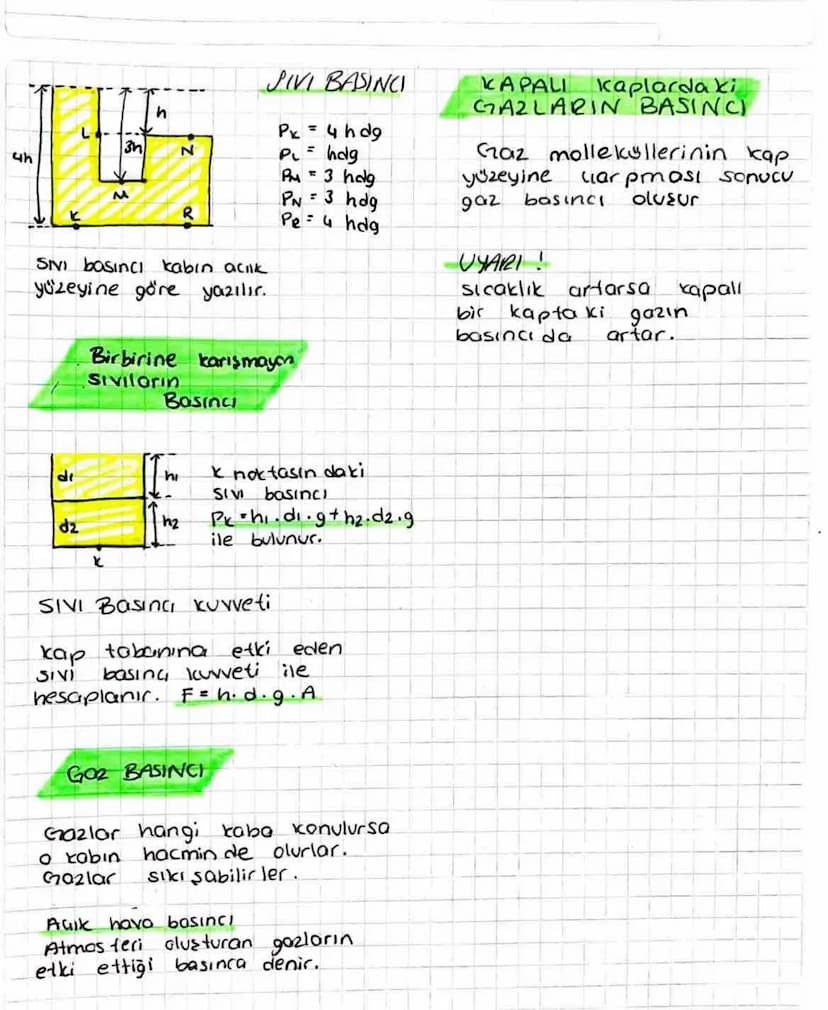 SIVI BASINCI
h
L
3h
N
4h
M
K
R
PK = 4 hdg
PL = hdg
PM = 3 hdg
PN = 3 hdg
PR = 4 hdg
SIVI basıncı kabın açık
yüzeyine göre yazılır.
Birbirine karışmayan
sıvıların
Basıncı
d1
h1
d2
h2
K
K noktasın daki
sıvı basıncı
PK = h1.d1.g+h2.d2.g
ile bulunur.
SIVI Basıncı kuvveti
Kap tabanına etki eden
sıvı basınç kuvveti ile
hesaplanır. F = h.d.g.A
GAZ BASINCI
Gazlar hangi kaba konulursa
o kabın hacmin de olurlar.
Gazlar sıkı şabilir ler.
Açık hava basıncı
Atmos feri oluşturan gazların
etki ettiği basınca denir.
KAPALI kaplardaki
GAZLARIN BASINCI
Gaz molleküllerinin kap
yüzeyine çarpması sonucu
gaz basıncı oluşur
UYARI !
sıcaklık artarsa kapalı
bir kapta ki gazın
basıncı da artar.